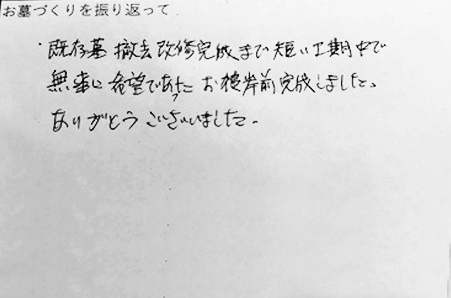 お墓づくりを振り返って
・既存墓撤去改修完成まで短い工期中で
無事に希望であったお彼岸前完成しました。
ありがとうございました。